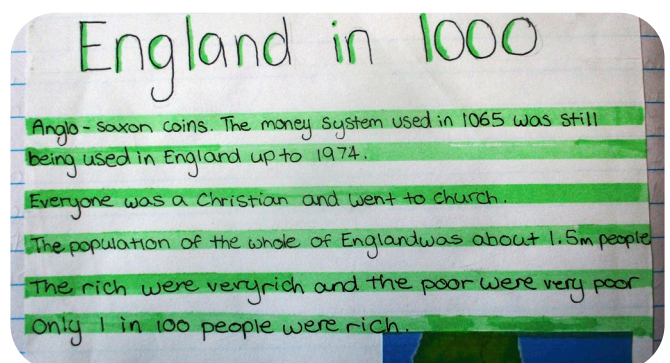 England in 1000
Anglo-Saxon coins. The money system used in 1065 was still
being used in England up to 1974.
Everyone was a Christian and went to church.
The population of the whole of Englandwas about 1.5m people
The rich were veryrich and the poor were very poor
Only 1 in 100 people were rich.